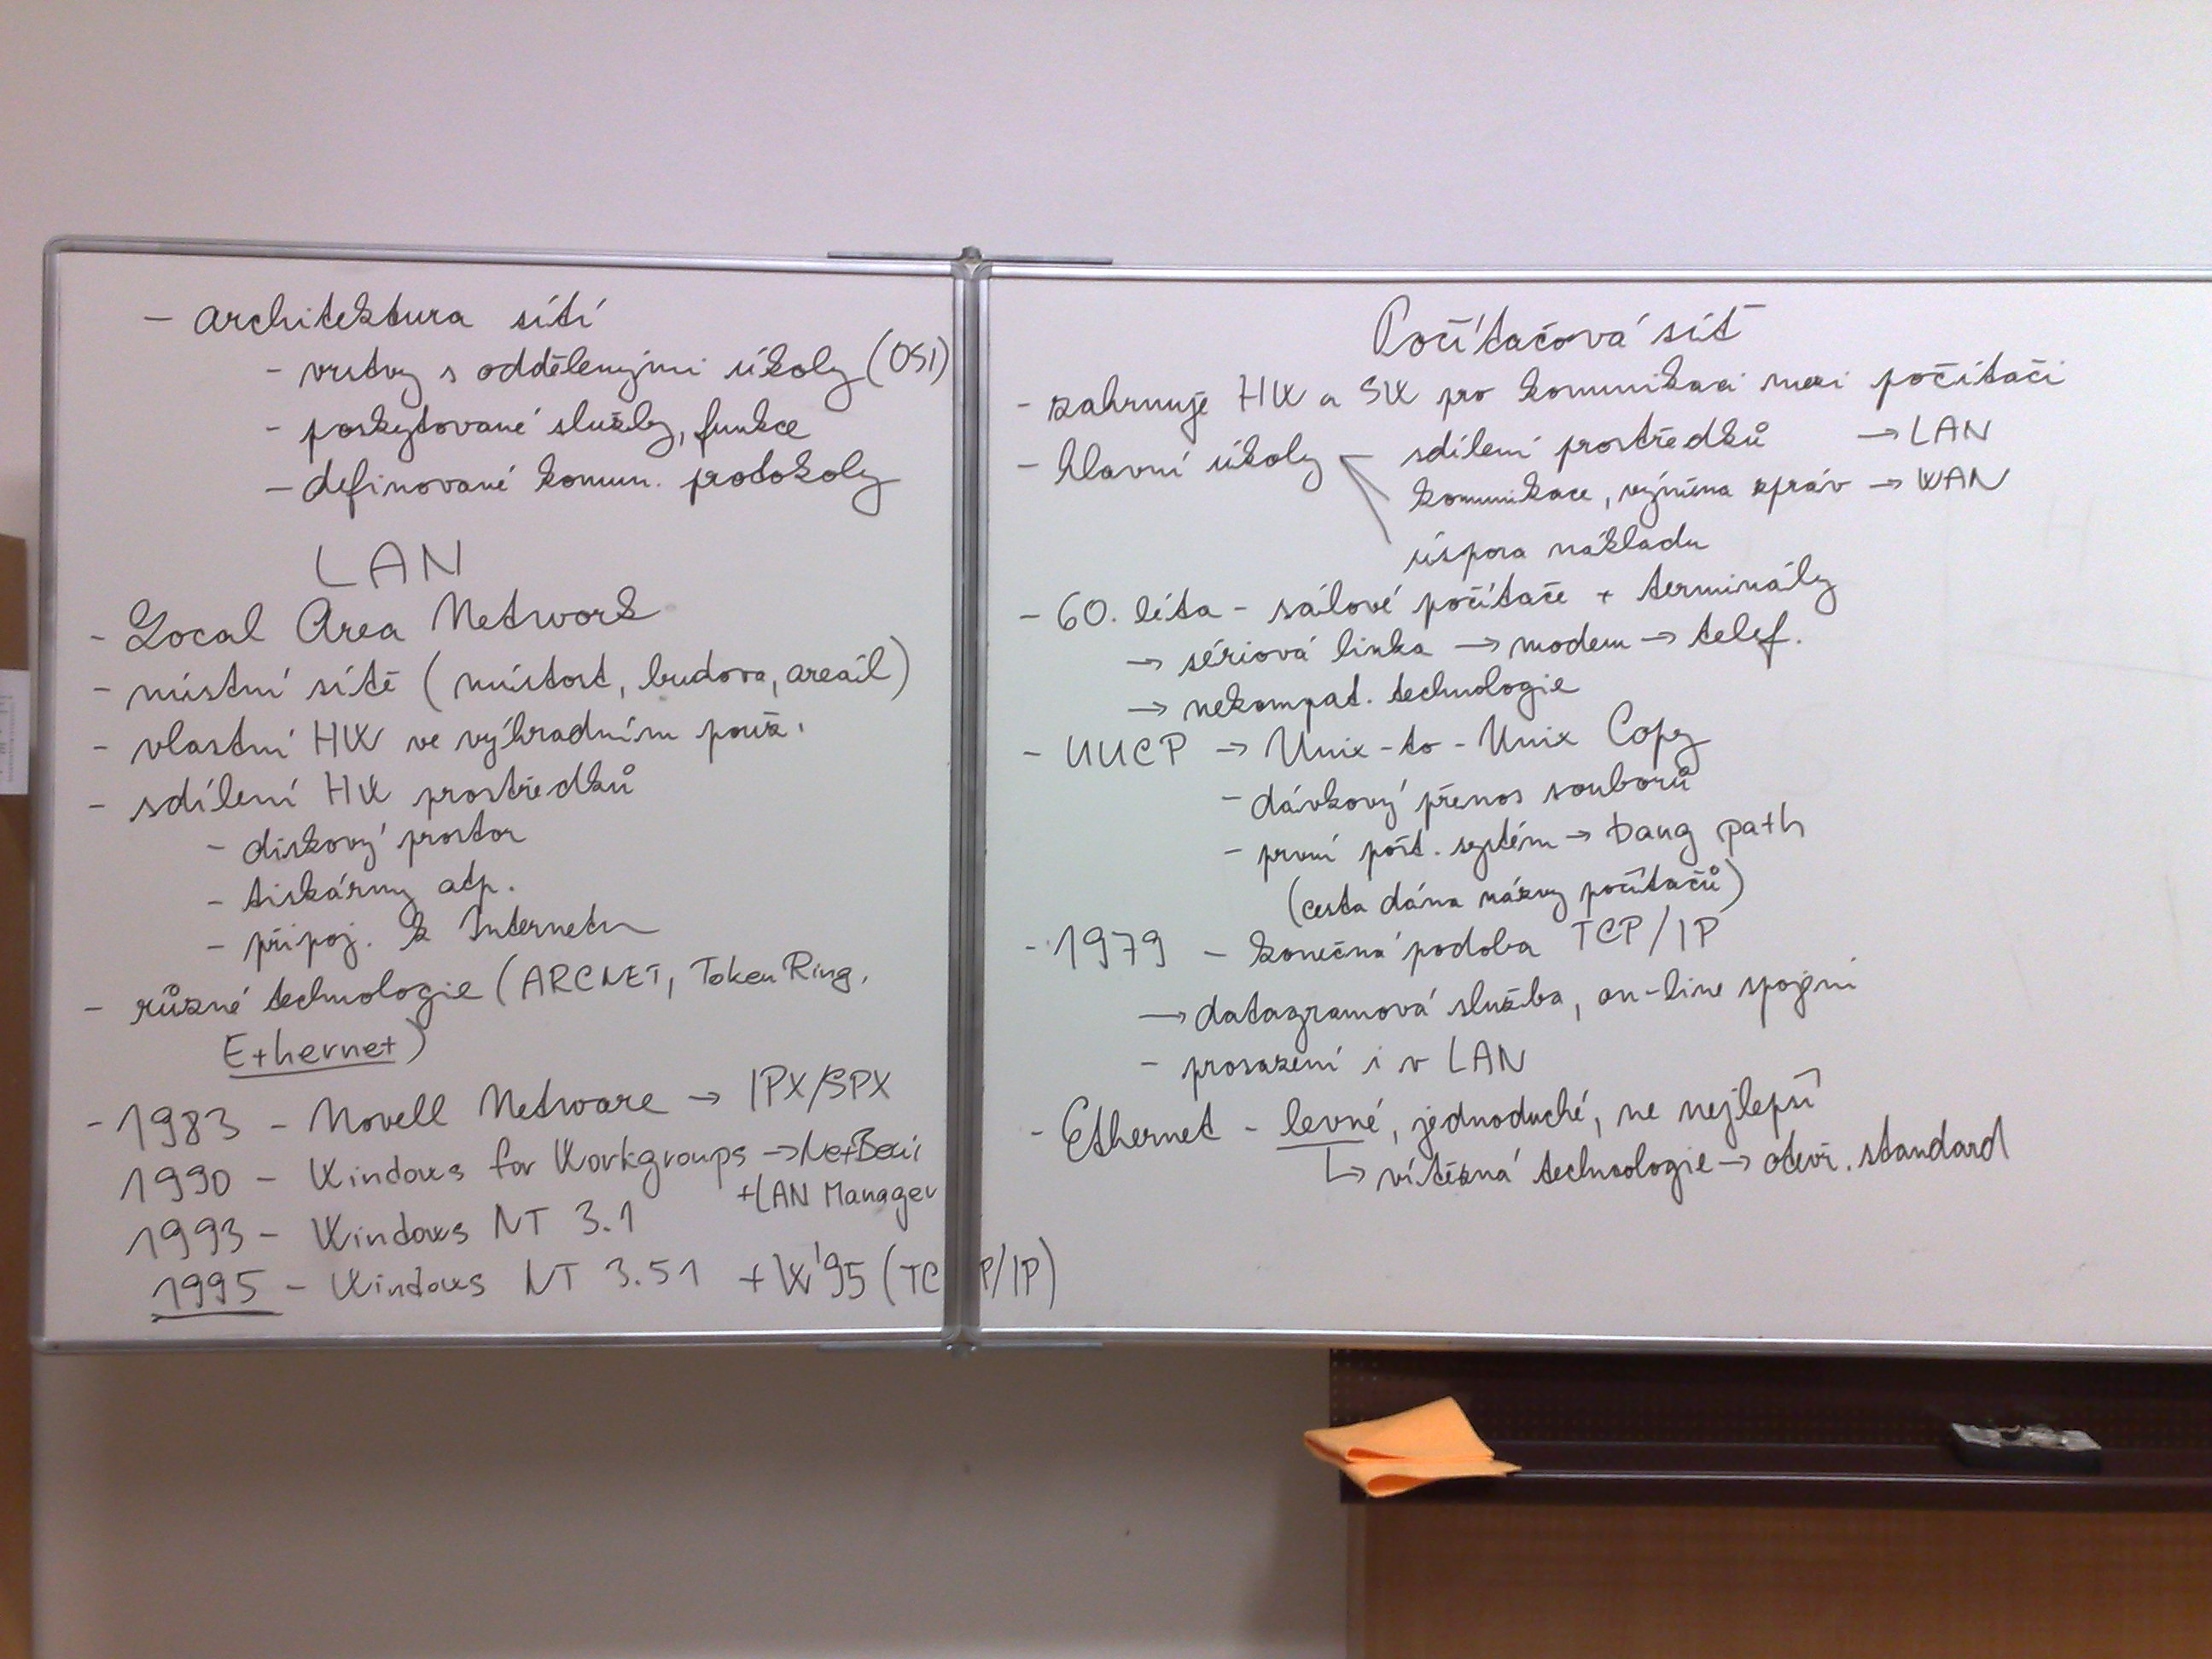 - architektura sítí
- vrstvy s oddělenými úkoly (OSI)
- poskytované služby, funkce
- definované komun. protokoly
LAN
- Local Area Network
- místní sítě (místnost, budova, areál)
- vlastní HW ve výhradním použ.
- sdílení HW prostředků
- diskový prostor
- tiskárny atp.
- připoj. k Internetu
- různé technologie (ARCNET, Token Ring,
Ethernet)
- 1983 - Novell Netware → IPX/SPX
1990 - Windows for Workgroups → NetBeui
+LAN Manager
1993 - Windows NT 3.1
1995 - Windows NT 3.51 + W'95 (TCP/IP)
Počítačová síť
- zahrnuje HW a SW pro komunikaci mezi počítači
- hlavní úkoly sdílení prostředků → LAN
komunikace, výměna zpráv → WAN
úspora nákladu
- 60. léta - sálové počítače + terminály
→ sériová linka → modem → telef.
→ nekompat. technologie
- UUCP → Unix-to-Unix Copy
- dávkový přenos souborů
- první pošt. systém → bang path
(cesta dána názvy počítačů)
- 1979 - konečná podoba TCP/IP
→ datagramová služba, on-line spojení
- prosazení i v LAN
- Ethernet - levné, jednoduché, ne nejlepší
↳ vítězná technologie → otevř. standard